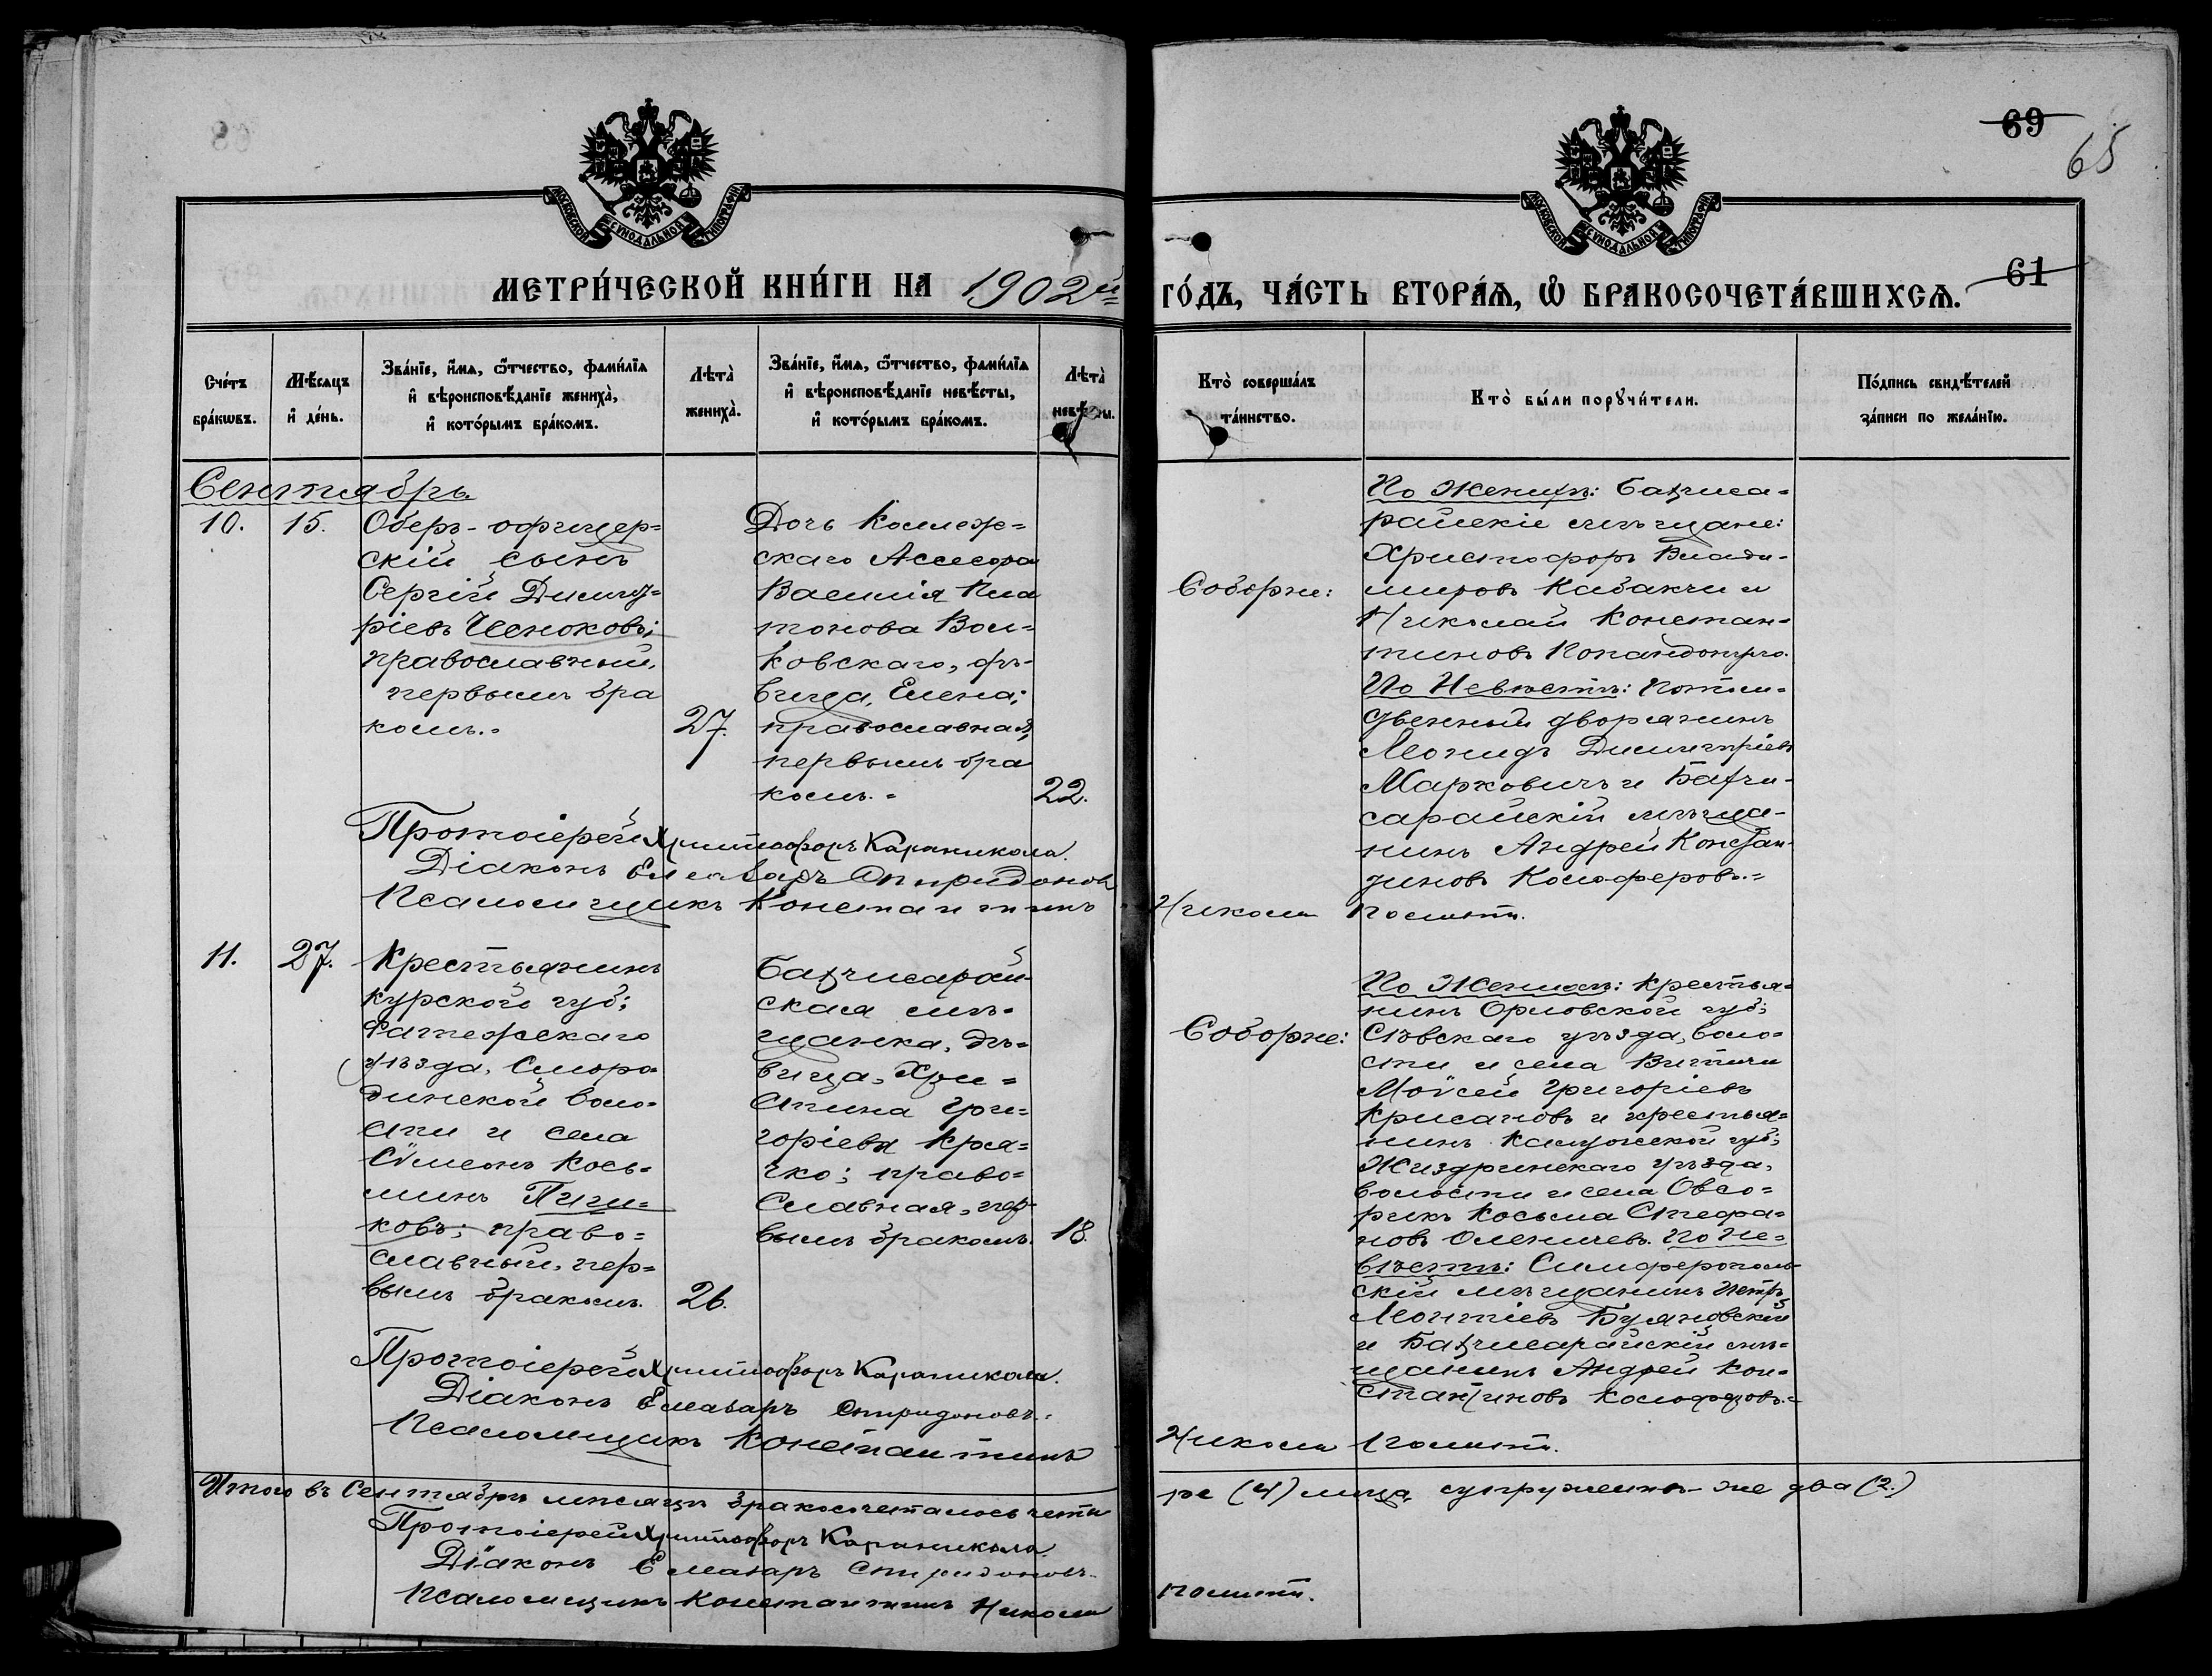 69
65
МОСКОВСКОЙ СѴНОДАЛЬНОЙ ТИПОГРАФІИ
МОСКОВСКОЙ СѴНОДАЛЬНОЙ ТИПОГРАФІИ
МЕТРИ́ЧЕСКОЙ КНИ́ГИ НА 1902й
ГО́ДЪ, ЧА́СТЬ ВТОРА́Ѧ, Ѡ҆ БРАКОСОЧЕТА́ВШИХСѦ.
61
Сче́тъ
бра́кѡвъ.
Мѣ́сѧцъ
и҆ де́нь.
Зва́нїе, и҆́мѧ, ѻ҆́тчество, фами́лїѧ
и҆ вѣроисповѣ́данїе жениха̀,
и҆ кото́рымъ бра́комъ.
Лѣта̀
жениха̀.
Зва́нїе, и҆́мѧ, ѻ҆́тчество, фами́лїѧ
и҆ вѣроисповѣ́данїе невѣ́сты,
и҆ кото́рымъ бра́комъ.
Лѣта̀
невѣ́сты.
Кто̀ соверша́лъ
та́инство.
Кто̀ бы́ли порꙋчи́тели.
По́дпись свидѣ́телей
за́писи по жела́нїю.
Сентябрь
10.
15.
Оберъ-офицер=
скій сынъ
Сергій Димит=
ріевъ Чесноковъ;
православный,
первымъ бра
комъ.=
27.
Дочь Коллеж=
скаго Ассесора
Василія Пла
тонова Вол=
ковскаго, дѣ-
вица, Елена;
православная,
первымъ бра
комъ.=
22.
Соборне:
По Женихѣ: Бахчиса=
райскіе мѣщане:
Христофоръ Влади-
міровъ Кабакчи и
Николай Констан=
тиновъ Попандопуло.
По Невѣстѣ: Потом=
ственный дворянинъ
Леонидъ Димитріевъ
Марковичъ и Бахчи-
сарайскій мѣща-
нинъ Андрей Констан
тиновъ Колоферовъ.=
Протоіерей Христофоръ Караникола.
Діаконъ Елеазаръ Спиридоновъ
Псаломщикъ Константинъ
Николи
11.
27.
Крестьянинъ
Курской губ:
Фатежскаго
уѣзда, Сморо
динской воло-
сти и села
Сѵмеонъ Кось=
минъ Пичи=
ковъ; право=
славный, пер=
вымъ бракомъ.
26.
Бахчисарай-
ская мѣ-
щанка, дѣ=
вица, Хри=
стина Гри=
горіева Кра=
чко; право=
славная, пер-
вымъ бракомъ.
18.
Соборне:
По Женихѣ: Крестья=
нинъ Орловской губ:
Сѣвскаго уѣзда, воло=
сти и села Витичи
Моѵсей Григоріевъ
Крисановъ и крестья=
нинъ Калужской губ:
Жиздринскаго уѣзда,
волости и села Овсо=
рикъ Косьма Стефа=
новъ Оленичевъ. По Не=
вѣстѣ: Симферополь-
скій мѣщанинъ Петръ
Леонтіевъ Буяновскій
и Бахчисарайскій мѣ=
щанинъ Андрей Кон=
стантиновъ Колоферовъ.=
Протоіерей Христофоръ Караникола.
Діаконъ Елеазаръ Спиридоновъ.
Псаломщикъ Константинъ
Николи
Итого въ Сентябрѣ мѣсяцѣ бракосочеталось четы
ре (4) лица, супружествъ-же два (2.)
Протоіерей Христофоръ Караникола.
Діаконъ Елеазаръ Спиридоновъ.
Псаломщикъ Константинъ Николи